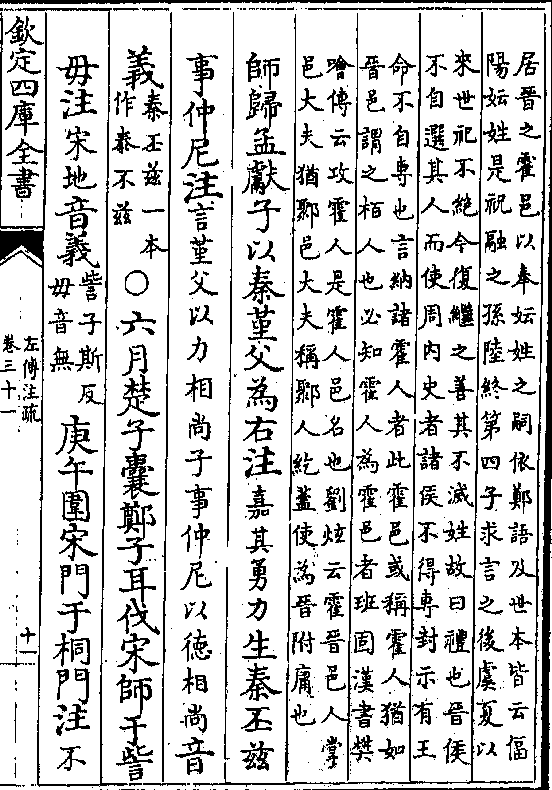 居晉之霍邑以奉妘姓之嗣依鄭語及世本皆云偪
陽妘姓是祝融之孫陸終第四子求言之後虞夏以
來世祀不絶今復繼之善其不滅姓故曰禮也晉侯
不自選其人而使周内史者諸侯不得專封示有王
命不自專也言納諸霍人者此霍邑或稱霍人猶如
晉邑謂之栢人也必知霍人為霍邑者班固漢書樊
噲傳云攻霍人是霍人邑名也劉炫云霍晉邑人掌
邑大夫猶鄹邑大夫稱鄹人紇蓋使為晉附庸也
師歸孟獻子以秦堇父為右注嘉其勇力生秦丕兹
事仲尼注言堇父以力相尚子事仲尼以德相尚音
義秦丕兹一本
作秦不兹
○六月楚子囊鄭子耳伐宋師于訾
毋注宋地音義
訾子斯反
毋音無
庚午圍宋門于桐門注不
欽定四庫全書
左傳注疏
卷三十一
十一